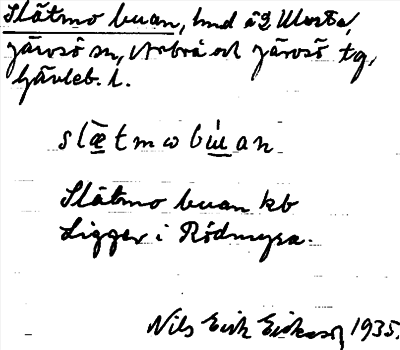 Slätmo buan, hmd å 2 Ulvsta,
Järvsö sn, Arbrå och Järvsö tg,
Gävleb. l.
slætmωbu̍an
Slätmo buan kb
Ligger i Rödmyra.
Nils Erik Eriksson 1935.